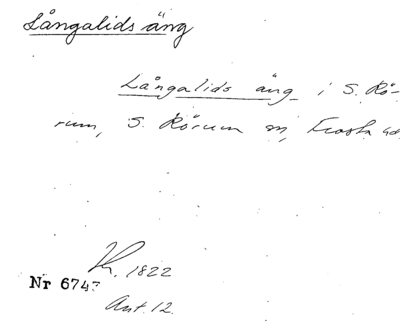 Långalids äng
Långalids äng i S. Rö-
rum, S. Rörum sn, Frosta hd.
K. 1822
Nr 6747
Ant. 12.